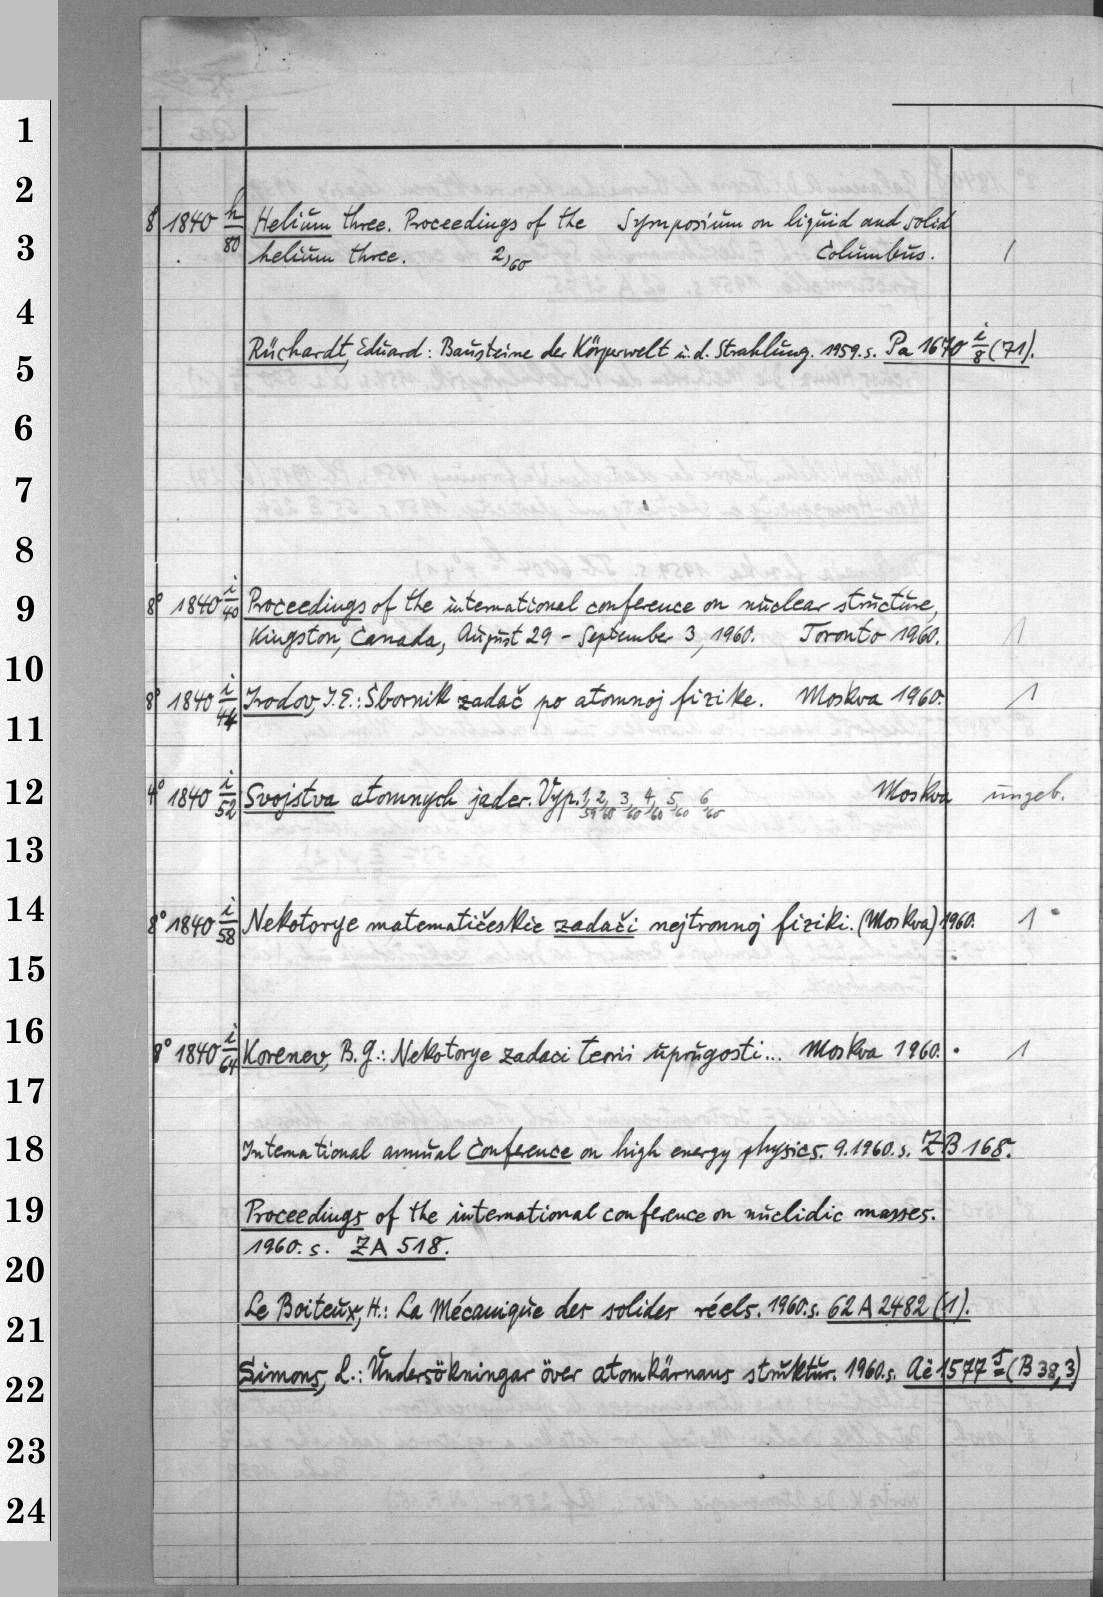 1
2
3
4
5
6
7
8
9
10
11
12
13
14
15
16
17
18
19
20
21
22
23
24
8° 1840 h/80 Helium three. Proceedings of the Symposium on liquid and solid
helium three. 2/60 Columbus. 1
Rüchardt, Eduard: Bausteine der Körperwelt u. d. Strahlung. 1959. s. Pa 1670 i/8 (71).
8° 1840 i/40 Proceedings of the international conference on nuclear structure,
Kingston, Canada, August 29 - September 3, 1960. Toronto 1960. 1
8° 1840 i/44 Irodov, I. E.: Sbornik zadač po atomnoj fizike. Moskva 1960. 1
4° 1840 i/52 Svojstva atomnych jader. Vyp. 1/59, 2/60, 3/60, 4/60, 5/60 6/60 Moskva ungeb.
8° 1840 i/58 Nekotorye matematičeskie zadači nejtronnoj fiziki. (Moskva) 1960. 1
8° 1840 i/64 Korenev, B. G.: Nekotorye zadaci teorii uprugosti... Moskva 1960. 1
International annual conference on high energy physics. 9.1960. s. ZB 168.
Proceedings of the international conference on nuclidic masses.
1960. s. ZA 518.
Le Boiteux, H.: La Mécanique des solides réels. 1960. s. 62 A 2482 (1).
Simons, L.: Undersökningar över atomkärnans struktur. 1960. s. Aè 1577 (B 38,3)